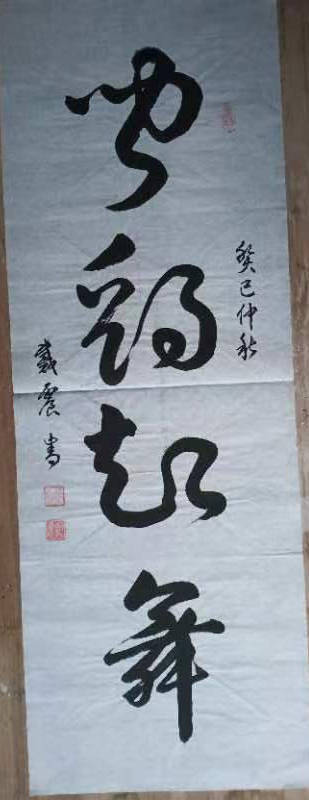 闻鸡起舞
癸巳仲秋
戴震书